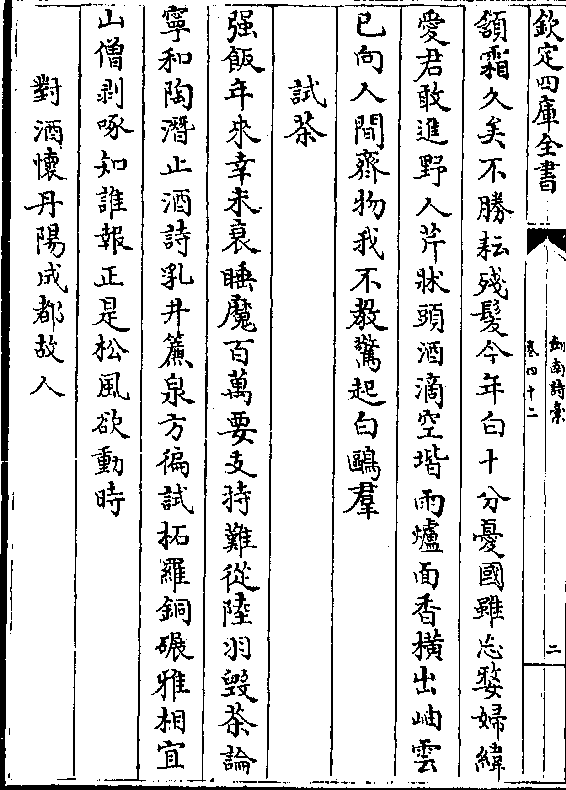 欽定四庫全書
劍南詩稾
卷四十二
二
頷霜久矣不勝耘殘髮今年白十分憂國雖忘嫠婦緯
愛君敢進野人芹牀頭酒滴空堦雨爐面香橫出岫雲
已向人間齊物我不敎驚起白鷗羣
試茶
强飯年來幸未衰睡魔百萬要支持難從陸羽毀茶論
寧和陶潛止酒詩乳井簾泉方徧試柘羅銅碾雅相宜
山僧剥啄知誰報正是松風欲動時
對酒懷丹陽成都故人